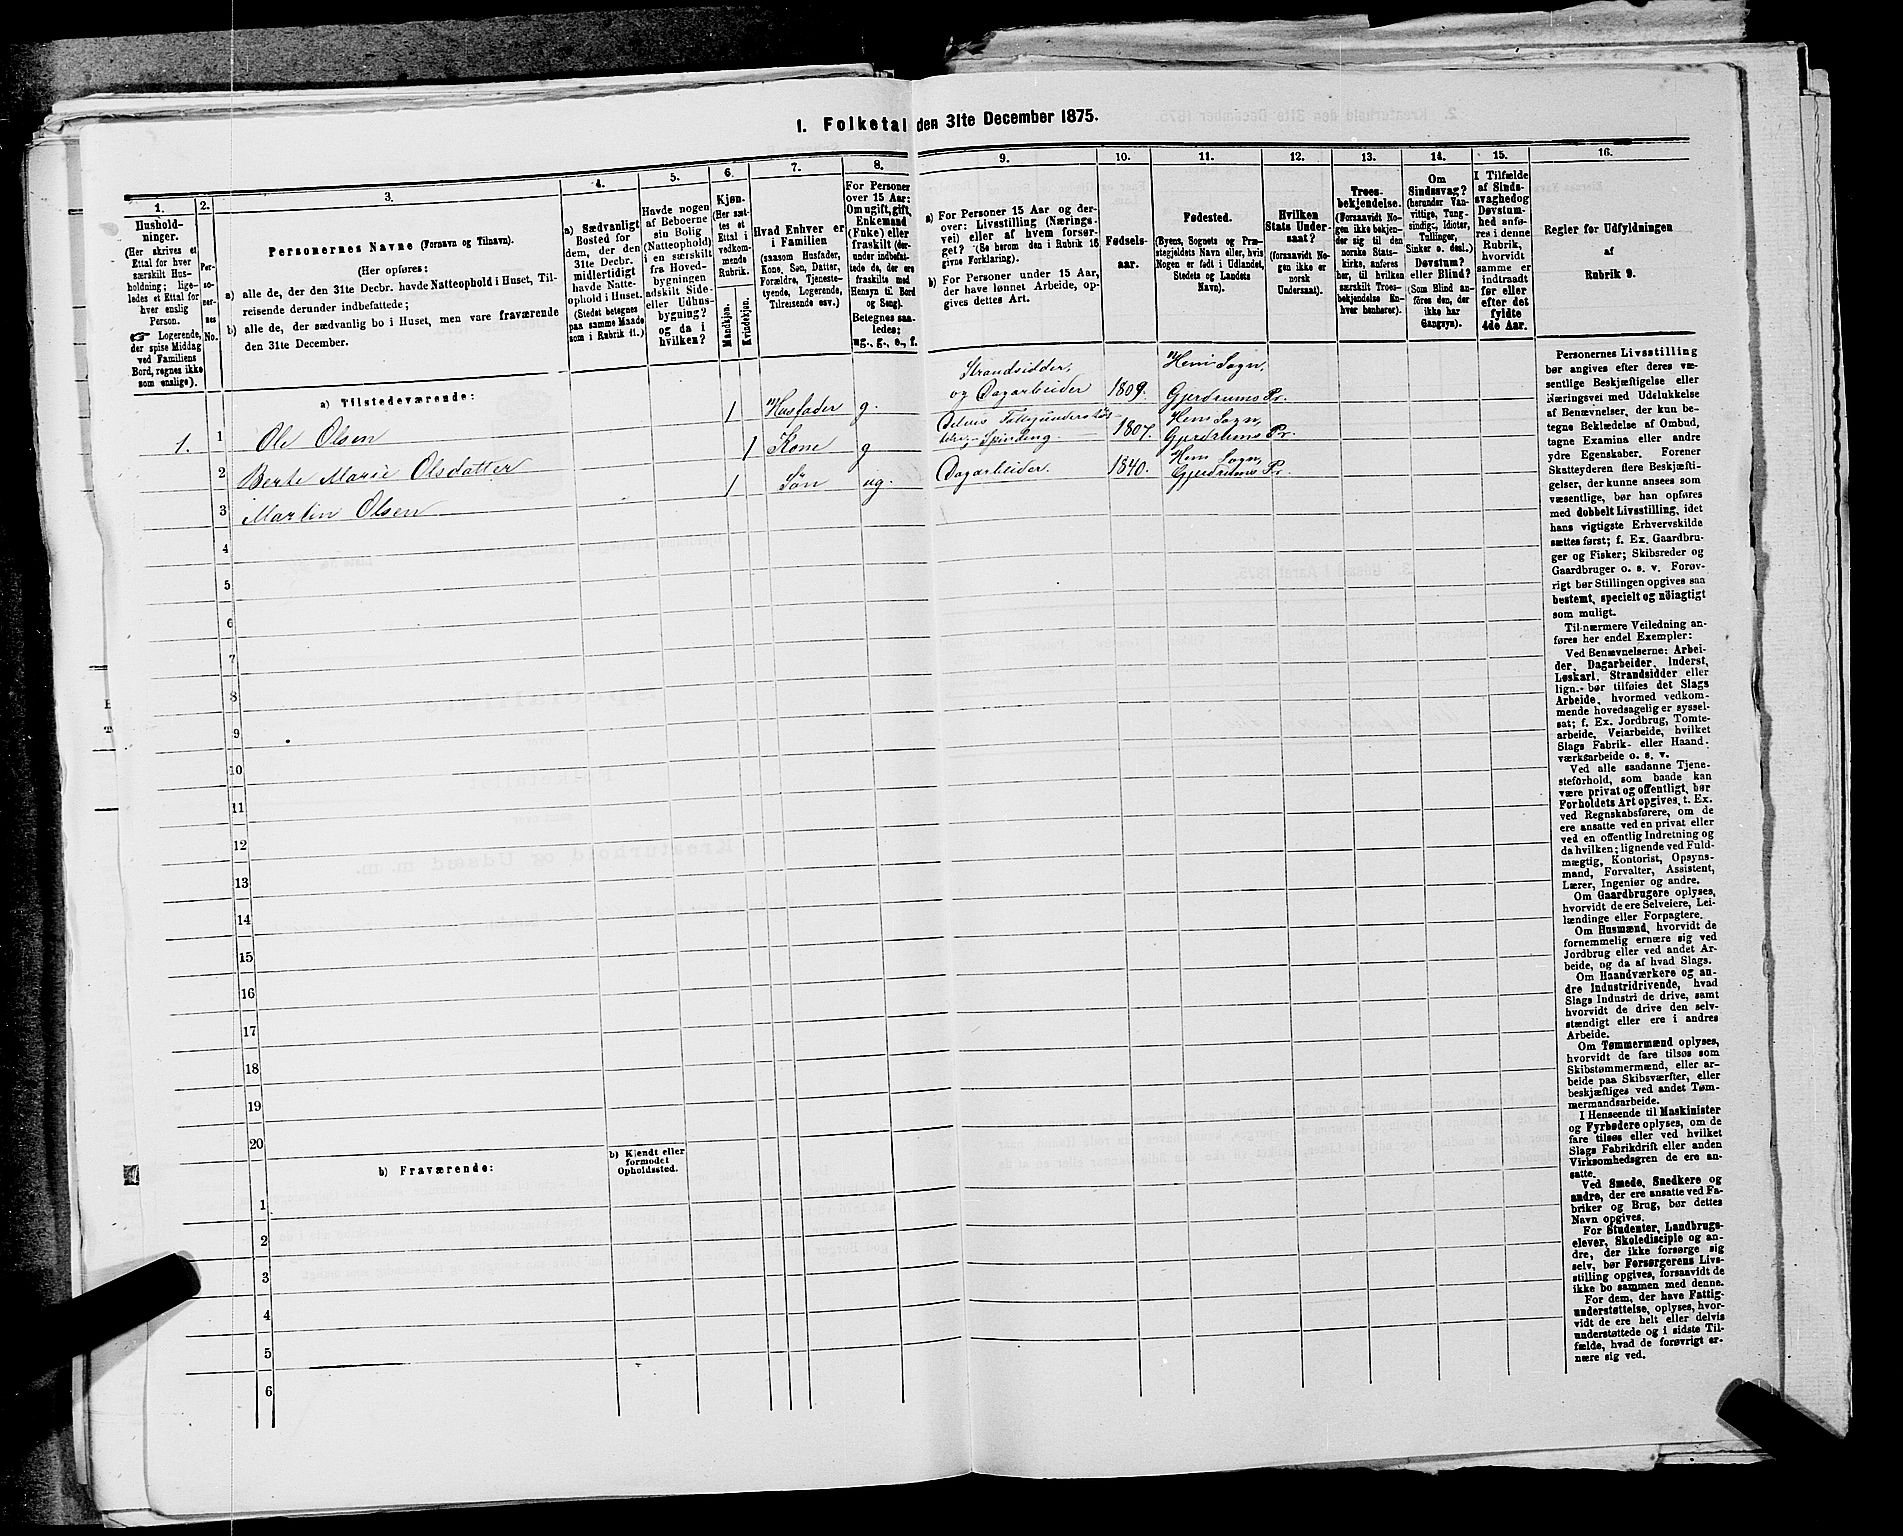 1. Folketal den 31te December 1875.
1.
Hushold-
ninger.
(Her skrives et
Ettal for hver
særskilt Hus-
holdning; lige-
ledes et Ettal for
hver enslig
Person.
☞ Logerende,
der spise Middag
ved Familiens
Bord, regnes ikke
som enslige).
2.
Per-
so-
ner-
nes
No.
3.
Personernes Navne (Fornavn og Tilnavn).
(Her opføres:
a) alle de, der den 31te Decbr. havde Natteophold i Huset, Til-
reisende derunder indbefattede;
b) alle de, der sædvanlig bo i Huset, men vare fraværende
den 31te December.
4.
a) Sædvanligt
Bosted for
dem, der den
31te Decbr.
midlertidigt
havde Natte-
ophold i Huset.
(Stedet betegnes
paa samme Maade
som i Rubrik 11.)
5.
Havde nogen
af Beboerne
sin Bolig
(Natteophold)
i en særskilt
fra Hoved-
bygningen
adskilt Side-
eller Udhus-
bygning?
og da i
hvilken?
6.
Kjøn.
(Her sæt-
tes et
Ettal i
vedkom-
mende
Rubrik.
Mandkjøn.
Kvindekjøn.
7.
Hvad Enhver er
i Familien
(saasom Husfader,
Kone, Søn, Datter,
Forældre, Tjeneste-
tyende, Logerende,
Tilreisende osv.)
8.
For Personer
over 15 Aar:
Om ugift, gift,
Enkemand
(Enke) eller
fraskilt (der-
under indbefat-
tede de, der ere
fraskilte med
Hensyn til Bord
og Seng).
Betegnes saa-
ledes:
ug., g., e., f.
9.
a) For Personer 15 Aar og der-
over: Livsstilling (Nærings-
vei) eller af hvem forsør-
get? (Se herom den i Rubrik 16
givne Forklaring).
b) For Personer under 15 Aar,
der have lønnet Arbeide, op-
gives dettes Art.
10.
Fødsels-
aar.
11.
Fødested.
(Byens, Sognets og Præ-
stegjeldets Navn eller, hvis
Nogen er født i Udlandet,
Stedets og Landets
Navn).
12.
Hvilken
Stats Under-
saat?
(forsaavidt No-
gen ikke er
norsk
Undersaat).
13.
Troes-
bekjendelse.
(Forsaavidt No-
gen ikke bekjen-
der sig til den
norske Stats-
kirke, anføres
her, til hvilken
særskilt Troes-
bekjendelse En-
hver henhører).
14.
Om
Sindssvag?
(herunder Van-
vittige, Tung-
sindige, Idioter,
Tullinger,
Sinker o. desl.)
Døvstum?
eller Blind?
(Som Blind an-
føres den, der
ikke har
Gangsyn).
15.
I Tilfælde
af Sinds-
svaghed og
Døvstum-
hed anfø-
res i denne
Rubrik,
hvorvidt
samme er
indtraadt
før eller
efter det
fyldte
4de Aar.
16.
Regler for Udfyldningen
af
Rubrik 9.
a) Tilstedeværende:
1. 1 Ole Olsen 1 Husfader g. Strandsidder, og Dagarbeider 1809. Hemi Sogn, Gjerdrums Pr.
2 Berte Marie Olsdatter 1 Kone g Spinding 1807. Hemi Sogn, Gjerdrums Pr.
3 Martin Olsen 1 Søn ug. Dagarbeider. 1840. Hemi Sogn, Gjerdrums Pr.
4
5
6
7
8
9
10
11
12
13
14
15
16
17
18
19
20
b) Fraværende:
b) Kjendt eller
formodet
Opholdssted.
1
2
3
4
5
6
Personernes Livsstilling
bør angives efter deres væ-
sentlige Beskjæftigelse eller
Næringsvei med Udelukkelse
af Benævnelser, der kun be-
tegne Beklædelse af Ombud,
tagne Examina eller andre
ydre Egenskaber. Forener
Skatteyderen flere Beskjæfti-
gelser, der kunne ansees som
væsentlige, bør han opføres
med dobbelt Livsstilling, idet
hans vigtigste Erhvervskilde
sættes først; f. Ex. Gaardbru-
ger og Fisker; Skibsreder og
Gaardbruger o. s. v. Forøv-
rigt bør Stillingen opgives saa
bestemt, specielt og nøiagtigt
som muligt.
Til nærmere Veiledning an-
føres her endel Exempler:
Ved Benævnelserne: Arbei-
der, Dagarbeider, Inderst,
Løskarl, Strandsidder eller
lign. bør tilføies det Slags
Arbeide, hvormed vedkom-
mende hovedsagelig er syssel-
sat; f. Ex. Jordbrug, Tomte-
arbeide, Veiarbeide, hvilket
Slags Fabrik- eller Haand-
værksarbeide o. s. v.
Ved alle saadanne Tjene-
steforhold, som baade kan
være privat og offentligt, bør
Forholdets Art opgives, t. Ex.
ved Regnskabsførere, om de
ere ansatte ved en privat eller
ved en offentlig Indretning og
da hvilken; lignende ved Fuld-
mægtig, Kontorist, Opsyns-
mand, Forvalter, Assistent,
Lærer, Ingeniør og andre.
Om Gaardbrugere oplyses,
hvorvidt de ere Selveiere, Lei-
lændinge eller Forpagtere.
Om Husmænd, hvorvidt de
fornemmelig ernære sig ved
Jordbrug eller ved andet Ar-
beide, og da af hvad Slags.
Om Haandværkere og an-
dre Industridrivende, hvad
Slags Industri de drive, samt
hvorvidt de drive den selv-
stændigt eller ere i andres
Arbeide.
Om Tømmermænd oplyses,
hvorvidt de fare tilsøs som
Skibstømmermænd, eller ar-
beide paa Skibsværfter, eller
beskjæftiges ved andet Tøm-
mermandsarbeide.
I Henseende til Maskinister
og Fyrbødere oplyses, om de
fare tilsøs eller ved hvilket
Slags Fabrikdrift eller anden
Virksomhedsgren de ere an-
satte.
Ved Smede, Snedkere og
andre, der ere ansatte ved Fa-
briker og Brug, bør dettes
Navn opgives.
For Studenter, Landbrugs-
elever, Skoledisciple og an-
dre, der ikke forsørge sig
selv, bør Forsørgerens Livs-
stilling opgives, forsaavidt de
ikke bo sammen med denne.
For dem, der have Fattig-
understøttelse, oplyses, hvor-
vidt de ere helt eller delvis
understøttede og i sidste Til-
fælde, hvad de forøvrigt er-
nære sig ved.